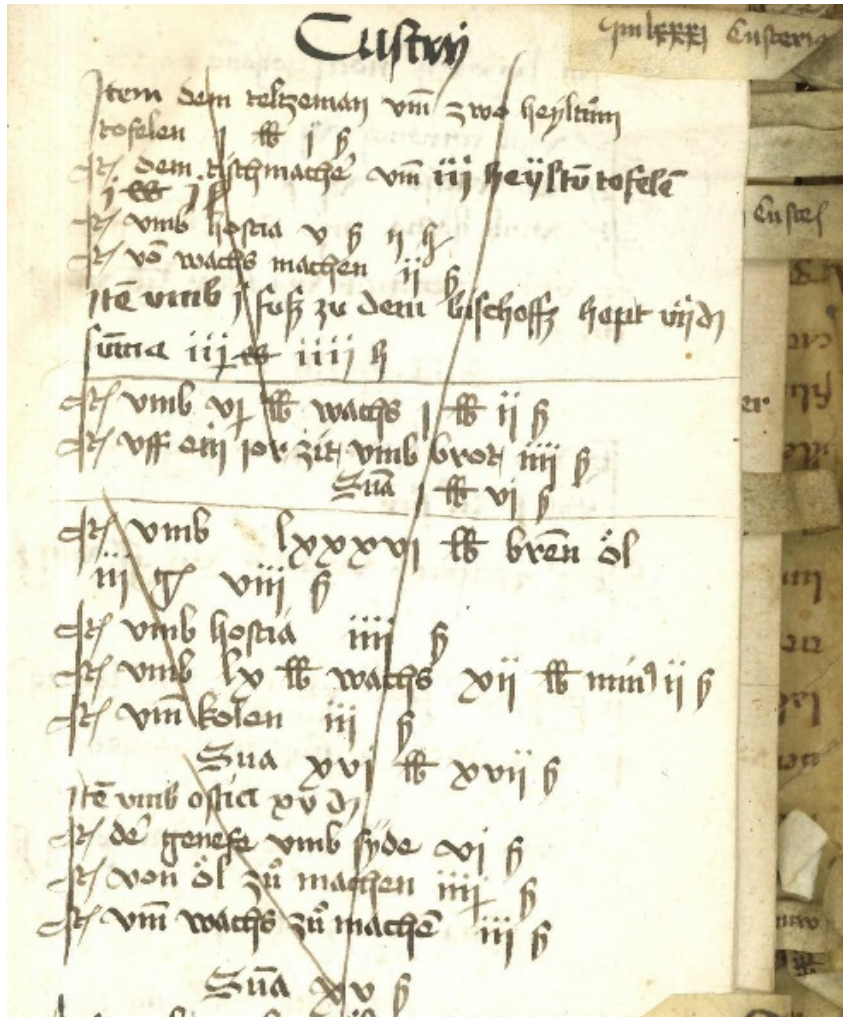 Custry
Item dem seltzeman vm̄ zwo heyltum
tofelen i lb i ß
It dem dischmacher vm̄ iii heyltū tofelē
i lb i ß
It vmb hostia v ß ii h
It vō wachs machen ii ß
Itē vmb i fuß zu dem bischoffz hept vij d
sūma iij lb iiii h
It vmb vj lb wachs i lb ii ß
It vff ein jor zit vmb brot iiii ß
Suā i lb vi ß
It vmb lxxxvi lb brēn öl
iii g viii ß
It vmb hostia iiii ß
It vmb lx lb wachs xii lb min9 ii ß
It vm̄ kolen iii ß
Sua xvi lb xvii ß
Itē vmb ostia xv d
It der genese vmb syde vi ß
It von öl zů machen iiij ß
It vm̄ wachs zů machē iii ß
Suā xv ß
Custeria
Custeri